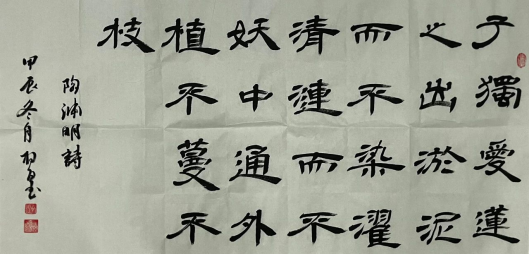 予獨愛蓮
之出淤泥
而不染濯
清漣而不
妖中通外
植不蔓不
枝
陶渊明詩
甲辰冬月